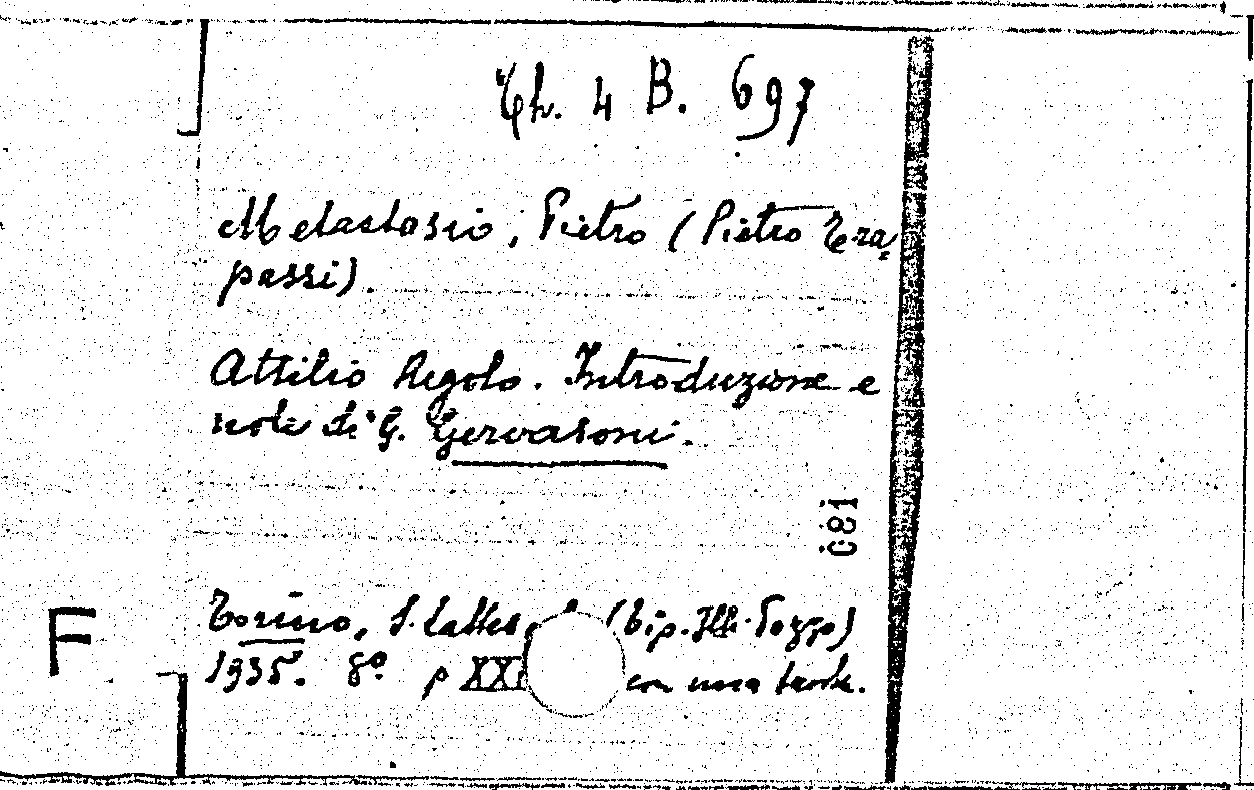 Th. 4 B. 697
Metastasio, Pietro (Pietro Tra,
passi).
Attilio Regolo. Introduzione e
note di G. Gervasoni.
180
F
Torino, S. Lattes (Tip. Flli. Pozzo)
1935. 8º p XXI con una tavola.